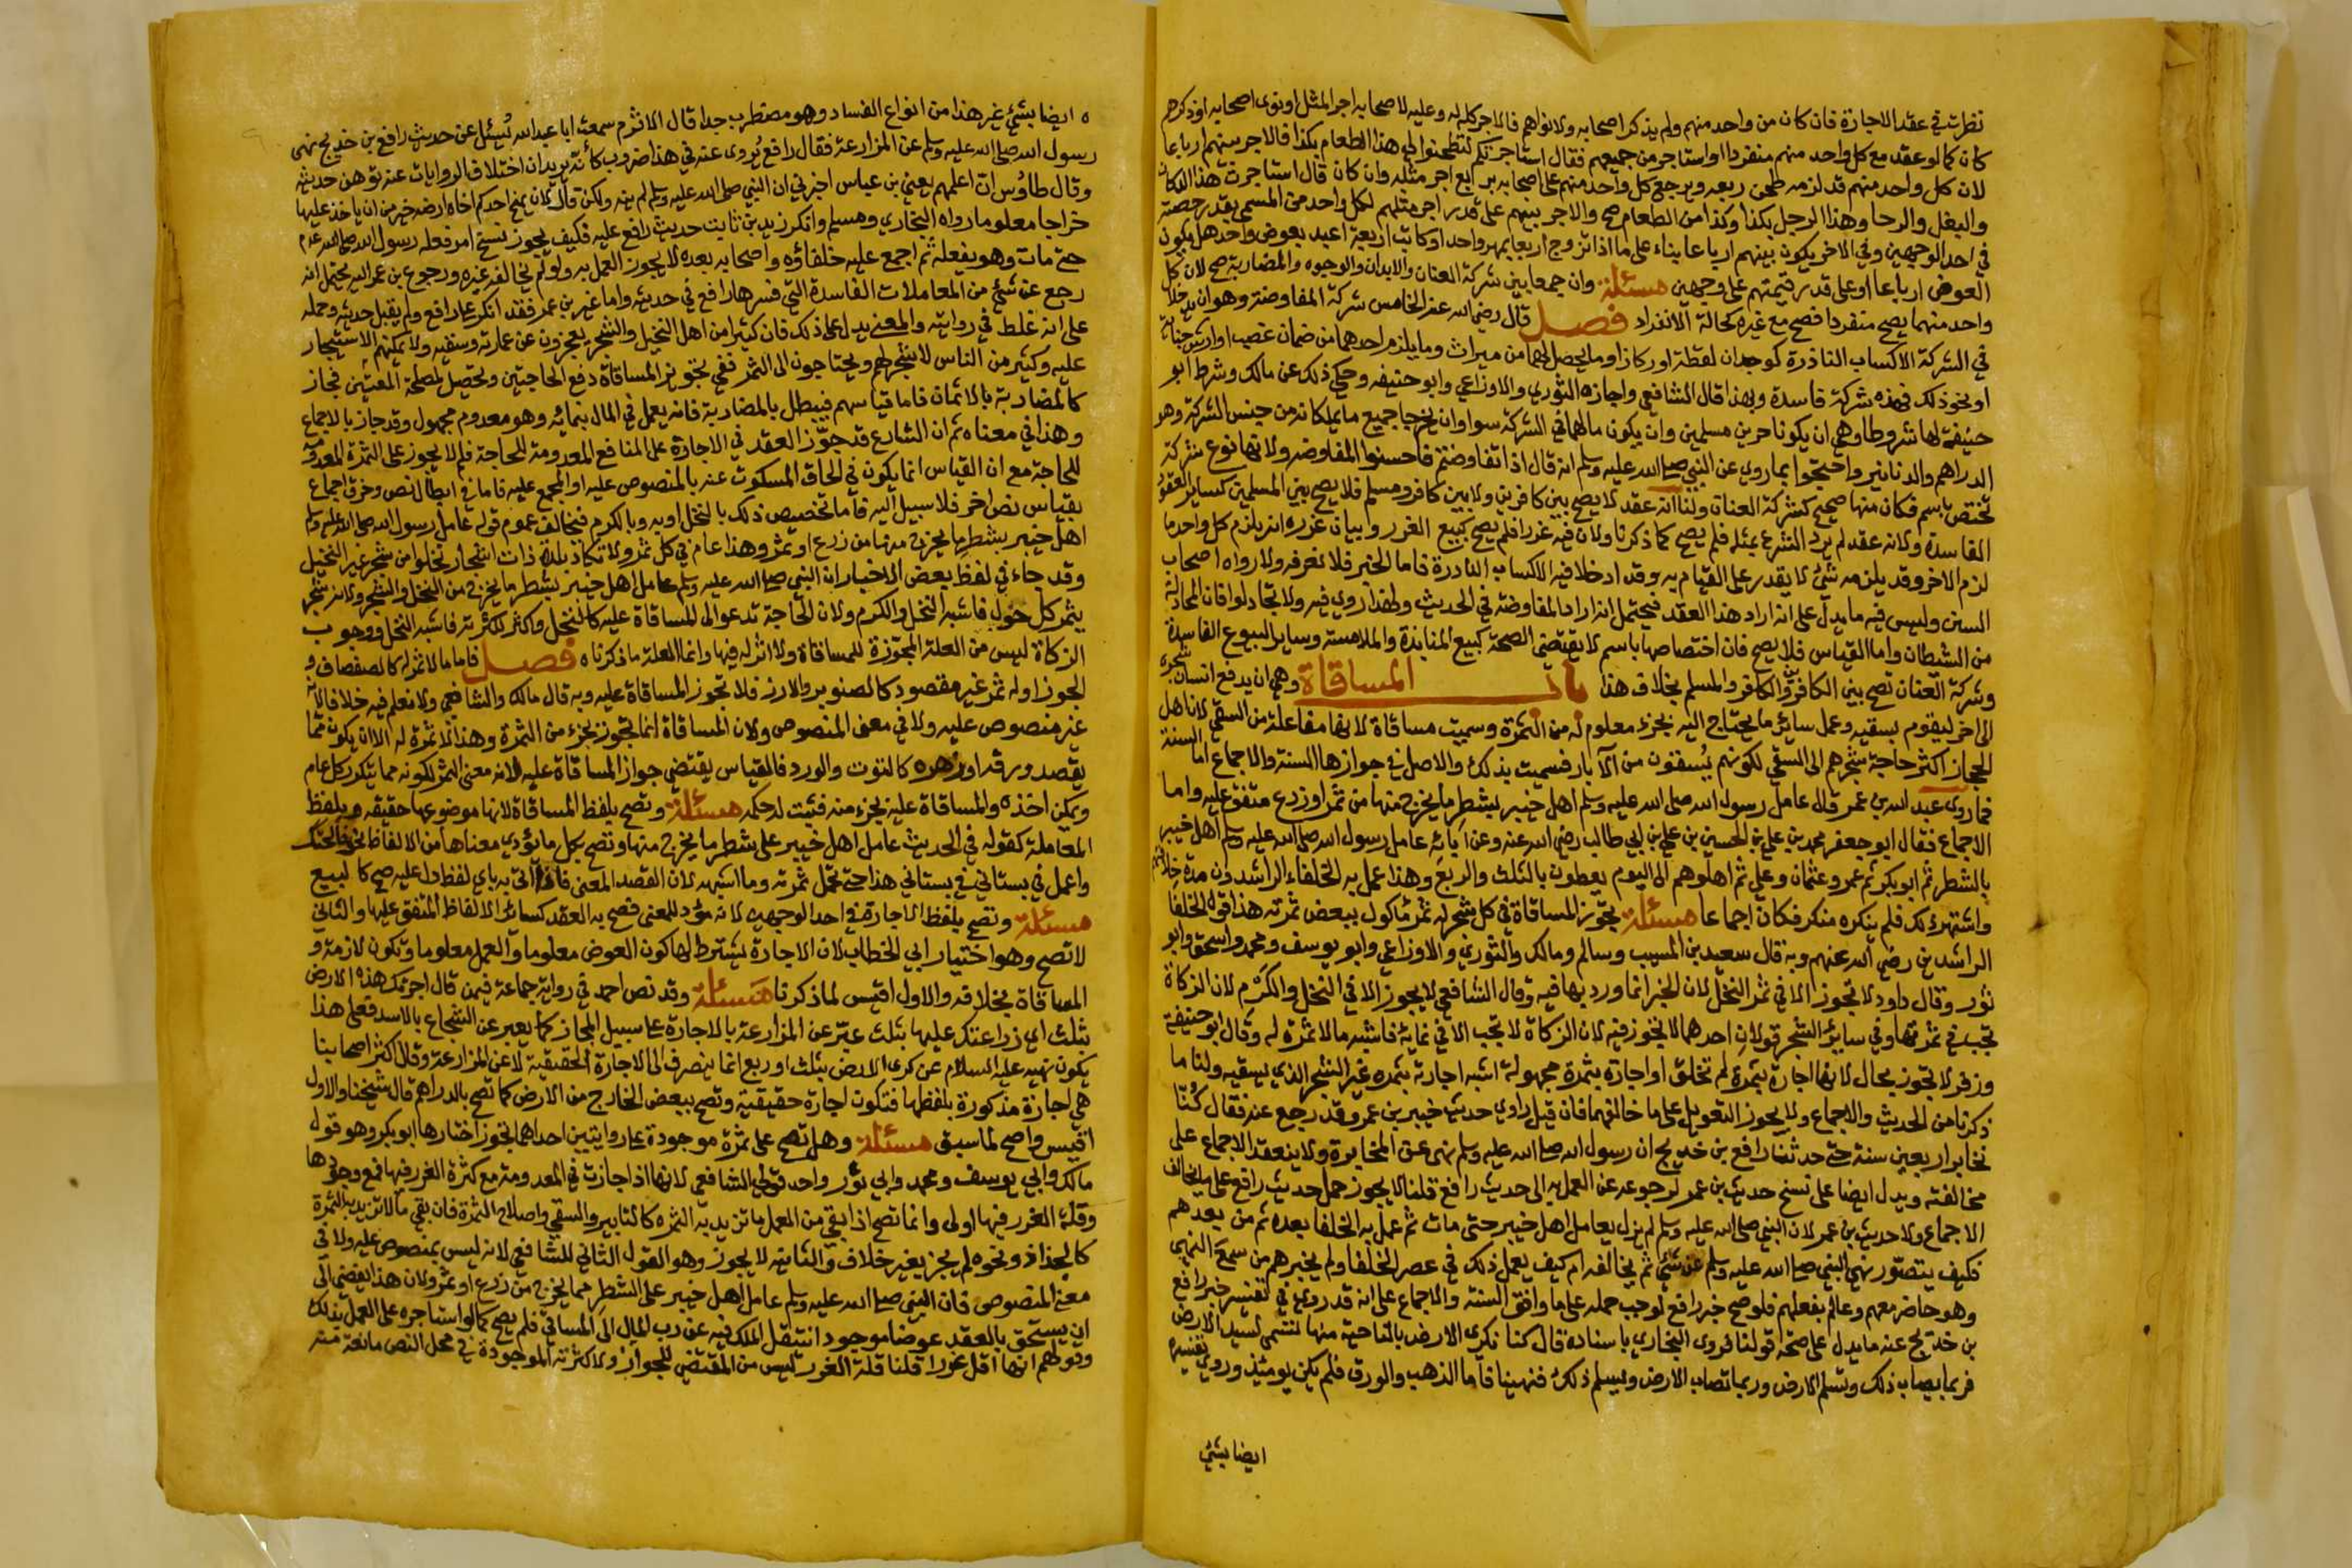 نظرت في عقد الاجارة فان كان من واحد منهم ولم يذكر اصحابه ولا نواهم فالاجر كله له وعليه لاصحابه اجر المثل اونوى اصحابه اوذكرهم
كان كما لو عقد مع كل واحد منهم منفردا او استاجر من جميعهم فقال استاجرتكم لتطحنوا لي هذا الطعام بكذا فالاجر بينهم ارباعا
لان كل واحد منهم قد لزمه طحن ربعه ويرجع كل واحد منهم على اصحابه بربع اجر مثله وان كان قال استاجرت هذا الدكان
والبغل والرحا وهذا الرجل بكذا وكذا من الطعام صح والاجر بينهم على قدر اجر مثلهم لكل واحد من المسمى بقدر حصته
في احد الوجهين وفي الاخر يكون بينهم ارباعا بناء على ما اذا تزوج اربعا بمهر واحد او كاتب اربعة اعبد بعوض واحد هل يكون
العوض ارباعا او على قدر قيمتهم على وجهين مسئلة وان جمعا بين شركة العنان والابدان والوجوه والمضاربة صح لان كل
واحد منهما يصح منفردا فصح مع غيره كحالة الانفراد فصل قال رضي الله عنه الخامس شركة المفاوضة وهو ان يدخلا
في الشركة الاكساب النادرة كوجدان لقطة اوركاز او ما يحصل لهما من ميراث وما يلزم احدهما من ضمان غصب او ارش جناية
او نحو ذلك فهذه شركة فاسدة وبهذا قال الشافعي واجازه الثوري والاوزاعي وابو حنيفه وحكي ذلك عن مالك وشرط ابو
حنيفة لها شروطا وهي ان يكونا حرين مسلمين وان يكون مالهما في الشركة سوا وان يخرجا جميع ما يملكانه من جنس الشركة وهو
الدراهم والدنانير واحتجوا بما روي عن النبي صلى الله عليه وسلم انه قال اذا تفاوضتم فاحسنوا المفاوضه ولانها نوع شركة
تختص باسم فكان منها صحيح كشركة العنان ولنا انه عقد لا يصح بين كافرين ولا بين كافر ومسلم فلا يصح بين المسلمين كساير العقود
الفاسدة ولانه عقد لم يرد الشرع بمثله فلم يصح كما ذكرنا ولان فيه غررا فلم يصح كبيع الغرر وبيان غرره انه يلزم كل واحد ما
لزم الاخر وقد يلزمه شئ لا يقدر على القيام به وقد ادخلا فيه الاكساب النادرة فاما الخبر فلا نعرفه ولا رواه اصحاب
السنن وليس فيه ما يدل على انه اراد هذا العقد فيحتمل انه اراد المفاوضة في الحديث ولهذا روي فيه ولا تجادلوا فان المجادلة
من الشيطان واما القياس فلا يصح فان اختصاصها باسم لا يقتضي الصحة كبيع المنابذة والملامسة وساير البيوع الفاسدة
وشركة العنان تصح بين الكافرين والكافر والمسلم بخلاف هذا باب المساقاة وهي ان يدفع انسان شجره
الى اخر ليقوم بسقيه وعمل سائر ما يحتاج اليه بجزء معلوم له من الثمرة وسميت مساقاة لانها مفاعلة من السقي لان اهل
الحجاز اكثر حاجة شجرهم الى السقي لكونهم يسقون من الابار فسميت بذلك والاصل في جوازها السنة والاجماع اما السنة
فما روى عبد الله بن عمر قال عامل رسول الله صلى الله عليه وسلم اهل خيبر بشطر ما يخرج منها من ثمر او زرع متفق عليه واما
الاجماع فقال ابو جعفر محمد بن علي بن الحسين بن علي بن ابي طالب رضي الله عنه وعن ابائه عامل رسول الله صلى الله عليه وسلم اهل خيبر
بالشطر ثم ابو بكر ثم عمر وعثمان وعلي ثم اهلوهم الى اليوم يعطون بالثلث والربع وهذا عمل به الخلفاء الراشدون مدة خلافتهم
واشتهر ذلك فلم ينكره منكر فكان اجماعا مسئلة تجوز المساقاة في كل شجر له ثمر ماكول ببعض ثمرته هذا قول الخلفا
الراشدين رضي الله عنهم وبه قال سعيد بن المسيب وسالم ومالك والثوري والاوزاعي وابو يوسف ومحمد واسحق وابو
ثور وقال داود لا تجوز الا في ثمر النخل لان الخبر انما ورد بها فيه وقال الشافعي لا يجوز الا في النخل والكرم لان الزكاة
تجب في ثمرتهما وفي سائر الشجر قولان احدهما لا تجوز فيه لان الزكاة لا تجب الا في نمائه فاشبه ما لا ثمرة له وقال ابو حنيفة
وزفر لا تجوز بحال لانها اجارة بثمرة لم تخلق او اجارة بثمرة مجهولة اشبه اجارته بثمره غير الشجر الذي يسقيه ولنا ما
ذكرنا من الحديث والاجماع ولا يجوز التعويل على ما خالفهما فان قيل راوي حديث خيبر بن عمر وقد رجع عنه فقال كنا
نخابر اربعين سنة حتى حدثنا رافع بن خديج ان رسول الله صلى الله عليه وسلم نهى عن المخابرة ولا ينعقد الاجماع على
مخالفته ويدل ايضا على نسخ حديث بن عمر لرجوعه عن العمل به الى حديث رافع قلنا لا يجوز حمل حديث رافع على ما يخالف
الاجماع ولا حديث بن عمر لان النبي صلى الله عليه وسلم لم يزل يعامل اهل خيبر حتى مات ثم عمل به الخلفا بعده ثم من بعدهم
فكيف يتصور نهي النبي صلى الله عليه وسلم عن شئ ثم يخالفه ام كيف يعمل ذلك في عصر الخلفا ولم يخبرهم من سمع النهي
وهو حاضر معهم وعالم بفعلهم فلو صح خبر رافع لوجب حمله على ما وافق السنة والاجماع على انه قد روي في تفسير خبر رافع
بن خديج عنه ما يدل على صحة قولنا فروى البخاري باسناده قال كنا نكري الارض بالناحية منها تسمى لسيد الارض
فربما يصاب ذلك وتسلم الارض وربما تصاب الارض ويسلم ذلك فنهينا فاما الذهب والورق فلم يكن يومئذ وروي تفسيره
ايضا بشئ
ايضا بشئ غير هذا من انواع الفساد وهو مضطرب جدا قال الاثرم سمعت ابا عبد الله يسئل عن حديث رافع بن خديج نهى
رسول الله صلى الله عليه وسلم عن المزارعة فقال رافع يروى عنه في هذا ضروب كأنه يريد ان اختلاف الروايات عنه توهن حديثه
وقال طاوس ان اعلمهم يعني بن عباس اخبرني ان النبي صلى الله عليه وسلم لم ينه عنه ولكن قال لان يمنح احدكم اخاه ارضه خير من ان ياخذ عليها
خراجا معلوما رواه البخاري ومسلم وانكر زيد بن ثابت حديث رافع عليه فكيف يجوز نسخ امر فعله رسول الله صلى الله عليه وسلم
حتى مات وهو يفعله ثم اجمع عليه خلفاؤه واصحابه بعده لا يجوز العمل به ولو لم يخالفه غيره ورجوع بن عمر اليه يحتمل انه
رجع عن شئ من المعاملات الفاسدة التي فسرها رافع في حديثه واما غير بن عمر فقد انكر على رافع ولم يقبل حديثه وحمله
على انه غلط في روايته والمعنى يدل على ذلك فان كثيرا من اهل النخيل والشجر يعجزون عن عمارته وسقيه ولا يمكنهم الاستيجار
عليه وكثير من الناس لا شجر لهم ويحتاجون الى الثمر ففي تجويز المساقاة دفع الحاجتين وتحصيل لمصلحة الفئتين فجاز
كالمضاربة بالاثمان فاما قياسهم فيبطل بالمضاربة فانه يعمل في المال بنمائه وهو معدوم مجهول وقد جاز بالاجماع
وهذا في معناه ثم ان الشارع قد جوز العقد في الاجارة على المنافع المعدومة للحاجة فلم لا يجوز على الثمرة المعدومة
للحاجة مع ان القياس انما يكون في الحاق المسكوت عنه بالمنصوص عليه او المجمع عليه فاما في ابطال نص وخرق اجماع
بقياس نص اخر فلا سبيل اليه فاما تخصيص ذلك بالنخل او به وبالكرم فيخالف عموم قوله عامل رسول الله صلى الله عليه وسلم
اهل خيبر بشطر ما يخرج منها من زرع او ثمر وهذا عام في كل ثمر ولا تكاد بلدة ذات اشجار تخلوا من شجر غير النخيل
وقد جاء في لفظ بعض الاخبار ان النبي صلى الله عليه وسلم عامل اهل خيبر بشطر ما يخرج من النخل والشجر ولانه شجر
يثمر كل حول فاشبه النخل والكرم ولان الحاجة تدعوا الى المساقاة عليه كالنخل واكثر لكثرته فاشبه النخل ووجوب
الزكاة ليس من العلة المجوزة للمساقاة ولا اثر له فيها وانما العلة ما ذكرناه فصل فاما ما لا ثمر له كالصفصاف و
الجوز او له ثمر غير مقصود كالصنوبر والارز فلا تجوز المساقاة عليه وبه قال مالك والشافعي ولا نعلم فيه خلافا لانه
غير منصوص عليه ولا في معنى المنصوص ولان المساقاة انما تجوز بجزء من الثمرة وهذا لا ثمرة له الا ان يكون مما
يقصد ورقه او زهره كالتوت والورد فالقياس يقتضي جواز المساقاة عليه لانه معنى الثمر لكونه مما يتكرر كل عام
ويمكن اخذه والمساقاة عليه بجزء منه فيثبت له حكمه مسئلة وتصح بلفظ المساقاة لانها موضوعها حقيقه وبلفظ
المعاملة كقوله في الحديث عامل اهل خيبر على شطر ما يخرج منها وتصح بكل ما يؤدي معناها من الالفاظ نحو فالحتك
واعمل في بستاني هذا حتى تكمل ثمرته وما اشبهه لان القصد المعنى فاذا اتى به باي لفظ دل عليه صح كالبيع
مسئلة وتصح بلفظ الاجارة في احد الوجهين لانه مؤد للمعنى فصح به العقد كسائر الالفاظ المتفق عليها والثاني
لا تصح وهو اختيار ابي الخطاب لان الاجارة يشترط لها كون العوض معلوما والعمل معلوما وتكون لازمة و
المساقاة بخلافه والاول اقيس لما ذكرنا مسئلة وقد نص احمد في رواية جماعة فيمن قال اجرتك هذه الارض
بثلث اي زارعتك عليها بثلث عبر عن المزارعة بالاجارة على سبيل المجاز كما يعبر عن الشجاع بالاسد فعلى هذا
يكون نهيه عليه السلام عن كرى الارض بثلث او ربع انما ينصرف الى الاجارة الحقيقية لا عن المزارعة وقال اكثر اصحابنا
هي اجارة مذكورة بلفظها فتكون اجارة حقيقية وتصح ببعض الخارج من الارض كما تصح بالدراهم قال شيخنا والاول
اقيس واصح لما سبق مسئلة وهل تصح على ثمرة موجودة على روايتين احداهما تجوز اختارها ابو بكر وهو قول
مالك وابي يوسف ومحمد وابي ثور واحد قولي الشافعي لانها اذا جازت في المعدومة مع كثرة الغرر فيها فمع وجودها
وقلة الغرر فيها اولى وانما تصح اذا بقي من العمل ما تزيد به الثمره كالتابير والسقي واصلاح الثمرة فان بقي ما لا تزيد به الثمرة
كالجذاذ ونحوه لم يجز بغير خلاف والثانية لا يجوز وهو القول الثاني للشافعي لانه ليس بمنصوص عليه ولا في
معنى المنصوص فان النبي صلى الله عليه وسلم عامل اهل خيبر على الشطر مما يخرج من زرع او ثمر ولان هذا يفضي الى
ان يستحق بالعقد عوضا موجودا تنتقل الملك فيه عن رب المال الى المساقي فلم يصح كما لو استاجره على العمل بذلك
وقولهم انها اقل غررا قلنا قلة الغرر ليس من المقتضي للجواز ولا كثرته الموجودة في محل النص مانعة منه